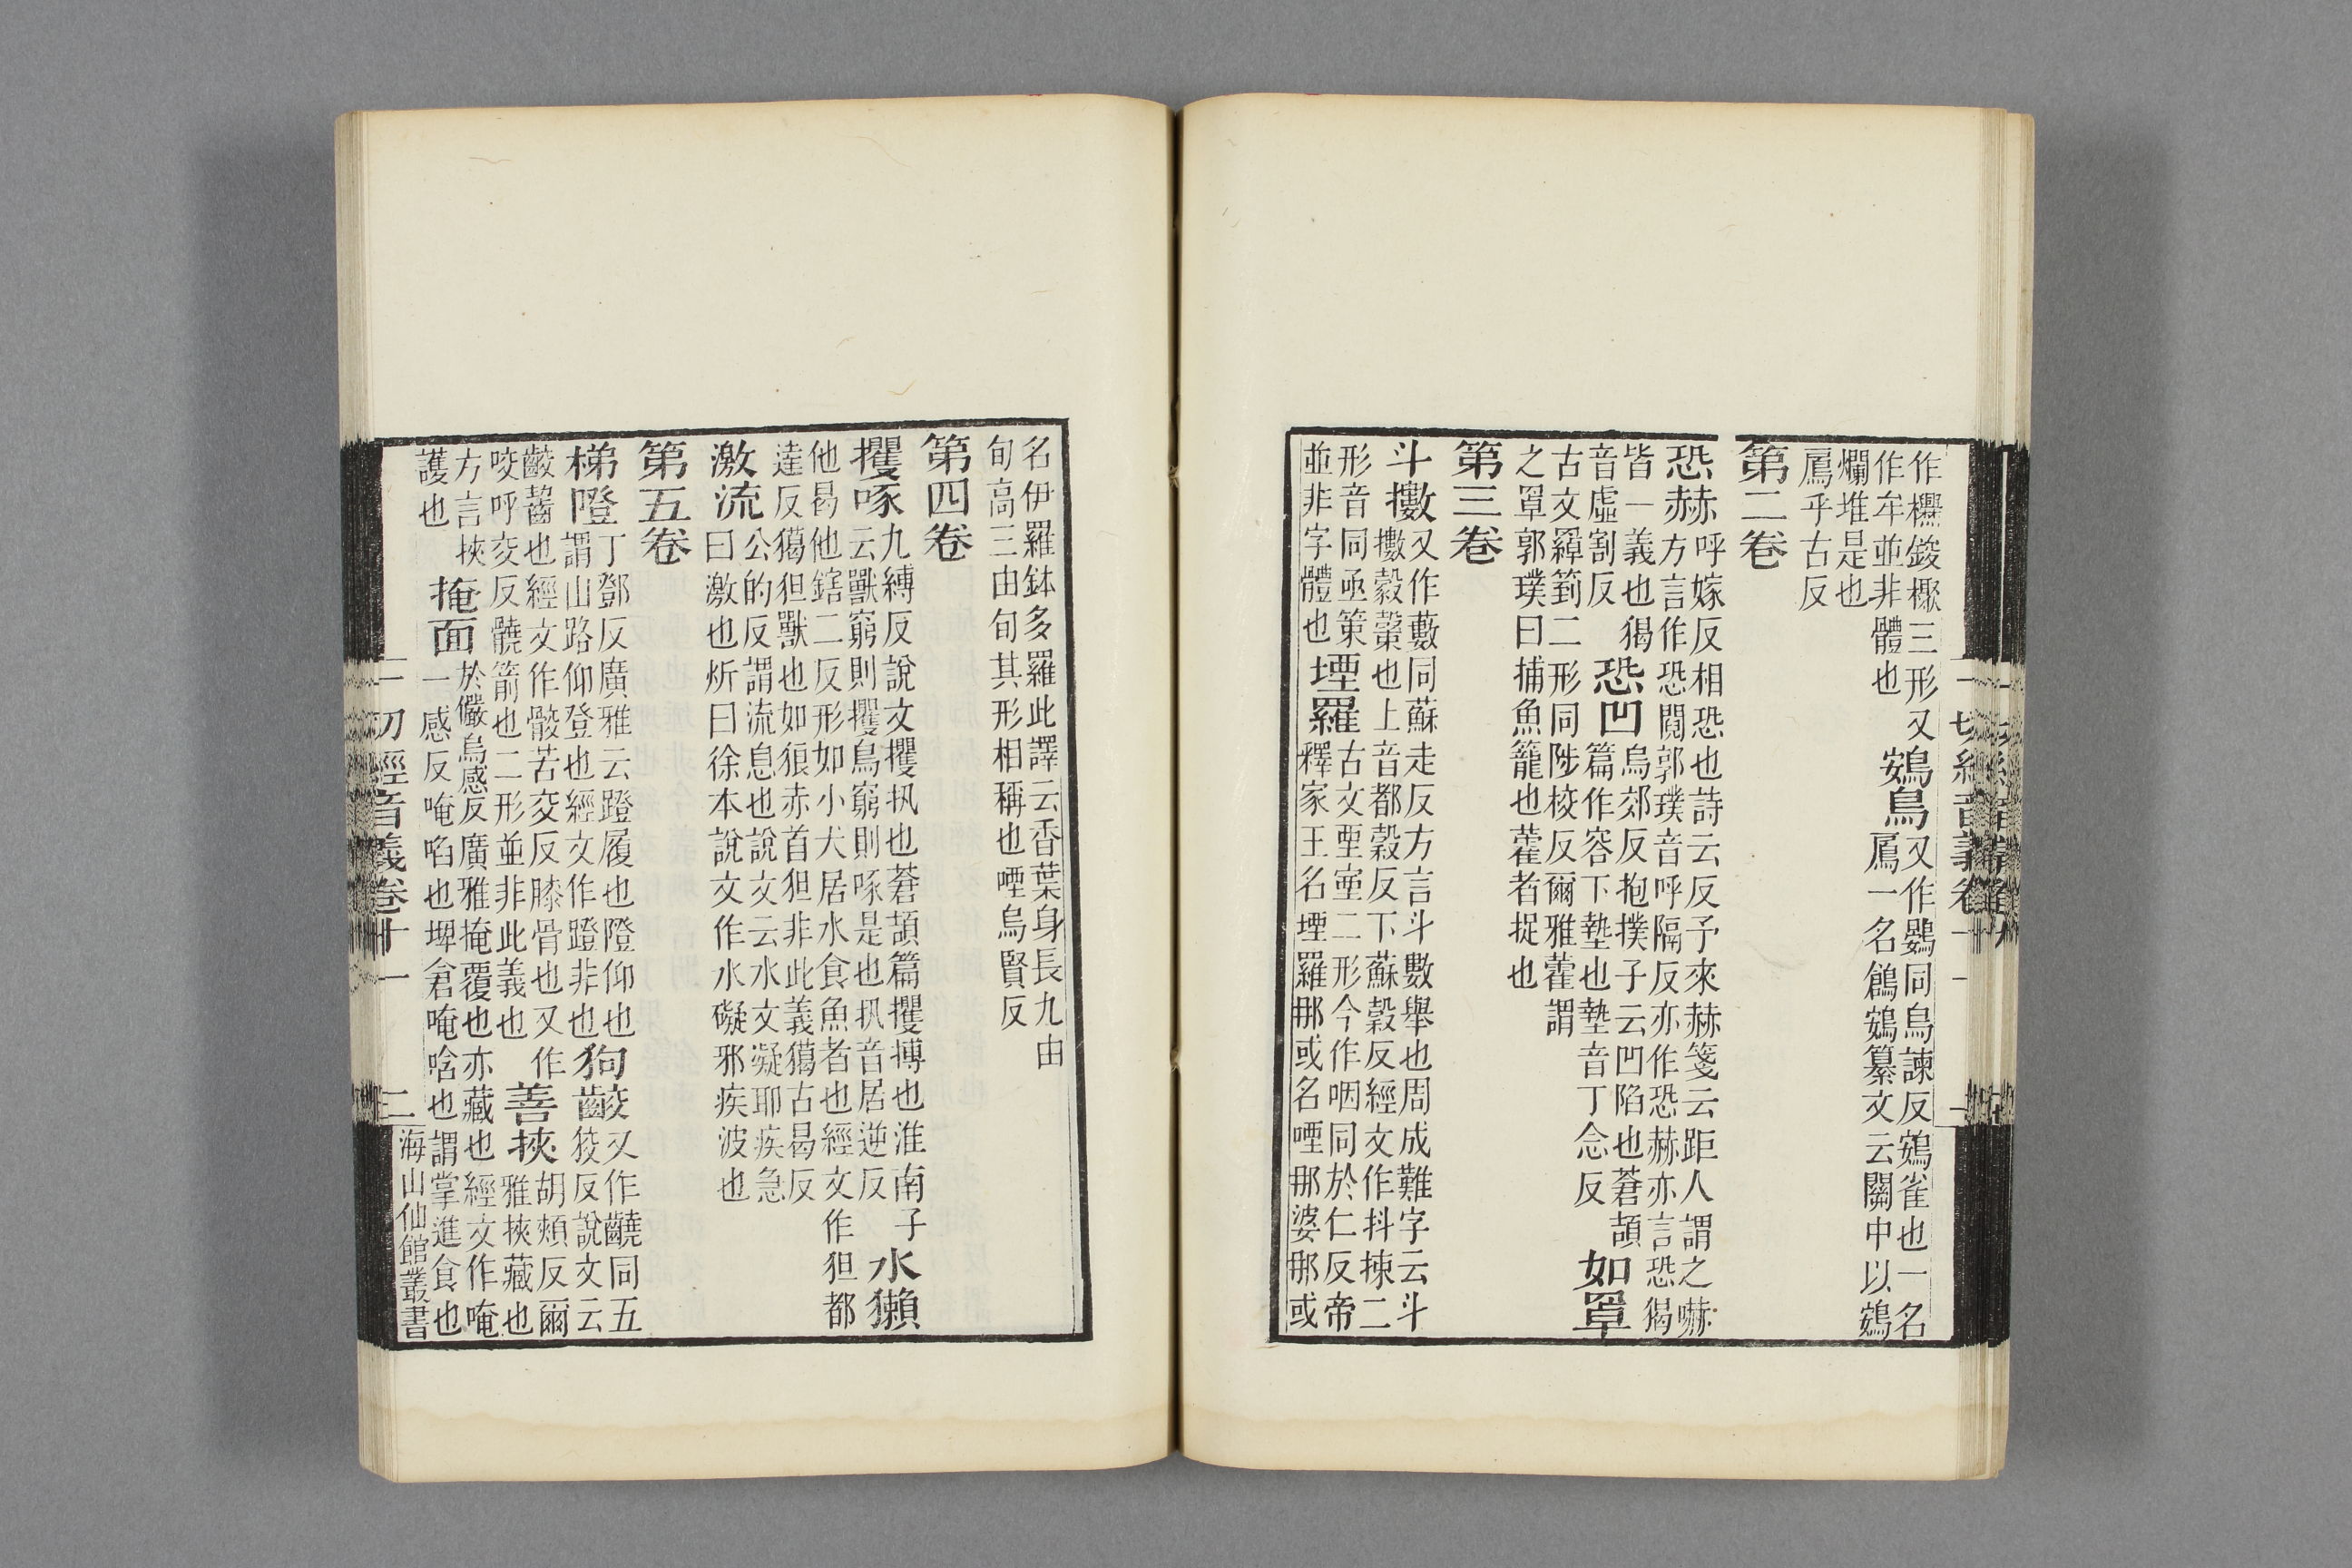 作欙鋑樶三形又
作牟並非體也
鴳鳥
又作鷃同烏諫反鴳雀也一名
鳸一名鶬鴳纂文云關中以鴳
爛堆是也
鳸乎古反
第二卷
恐赫
呼嫁反相恐也詩云反予來赫箋云距人謂之嚇
方言作恐鬩郭璞音呼隔反亦作恐赫亦言恐猲
皆一義也猲
音虛割反
恐凹
烏郊反抱撲子云凹陷也蒼頡
篇作容下墊也墊音丁念反
如罩
古文羄箌二形同陟校反爾雅藋謂
之罩郭璞曰捕魚籠也藋者捉也
第三卷
斗擻
又作藪同蘇走反方言斗數舉也周成難字云斗
擻㲉㯏也上音都㲉反下蘇㲉反經文作抖揀二
形音同亟策
並非字體也
堙羅
古文垔㙠二形今作咽同於仁反帝
釋家王名堙羅那或名㖶那婆那或
名伊羅鉢多羅此譯云香葉身長九由
旬高三由旬其形相稱也㖶烏賢反
第四卷
攫啄
九縛反說文攫扟也蒼頡篇攫搏也淮南子
云獸窮則攫鳥窮則啄是也扟音居逆反
水獺
他曷他鎋二反形如小犬居水食魚者也經文作狚都
達反獦狚獸也如狼赤首狚非此義獦古曷反
激流
公的反謂流息也說文云水文凝邪疾急
曰激也炘曰徐本說文作水礙邪疾波也
第五卷
梯隥
丁鄧反廣雅云蹬履也隥仰也
謂山路仰登也經文作蹬非也
狗齩
又作齾同五
狡反說文云
齩齧也經文作骹苦交反膝骨也又作
咬呼交反髐箭也二形並非此義也
善挾
胡頰反爾
雅挾藏也
方言挾
護也
掩面
於儼烏感反廣雅掩覆也亦藏也經文作唵
一感反唵啗也埤倉唵啥也謂掌進食也
一切經音義卷十一
二
海山仙館叢書